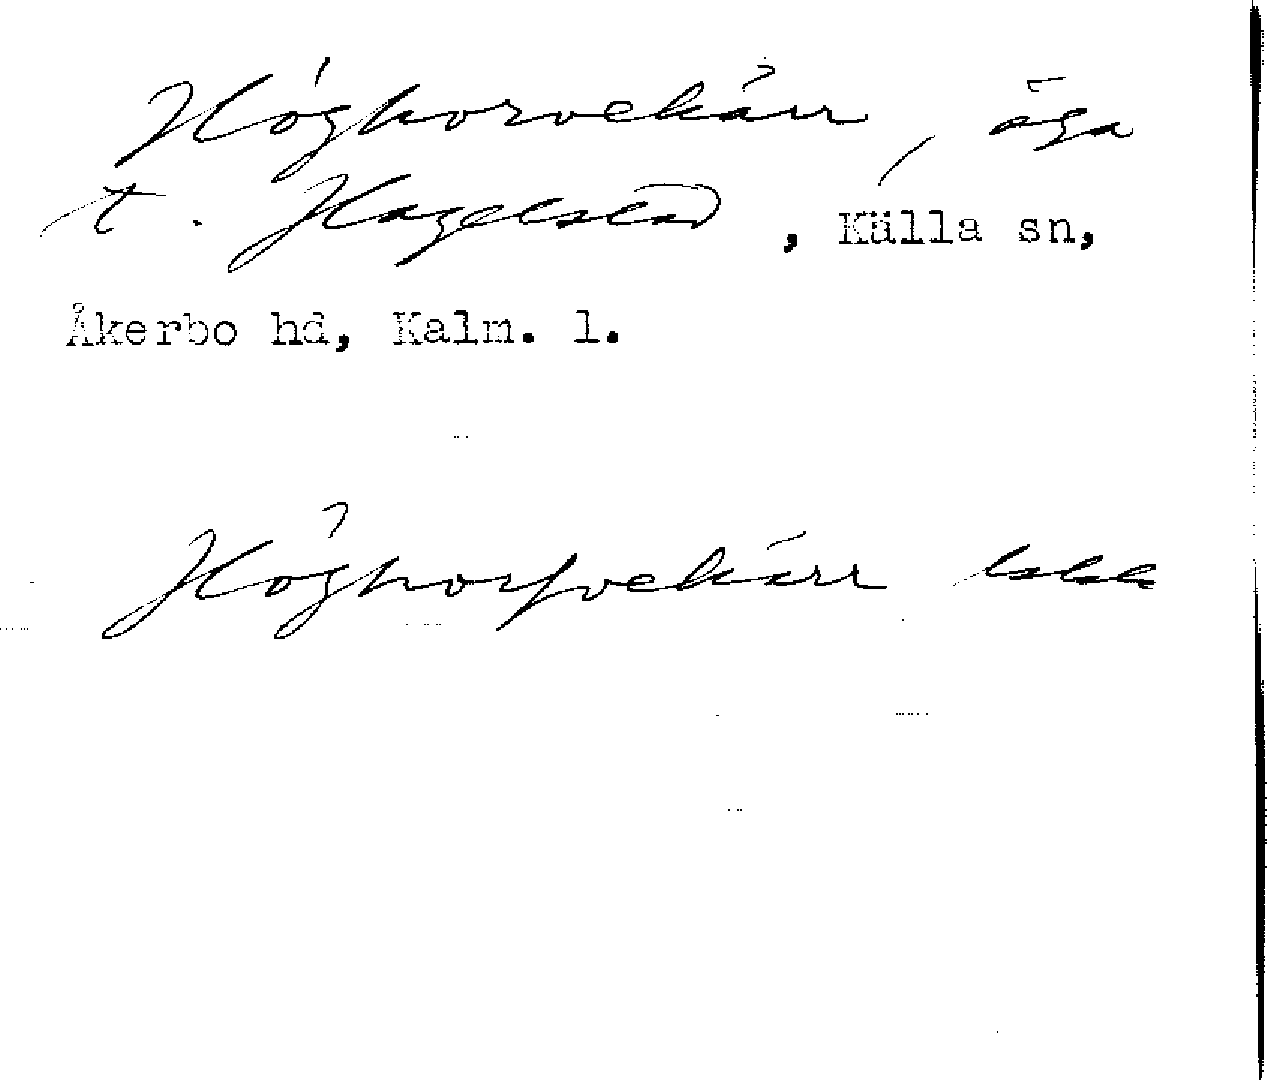 Höghorvekärr, äga
t. Hagelstad, Källa sn,
Åkerbo hd, Kalm. l.
Höghorfvekärr